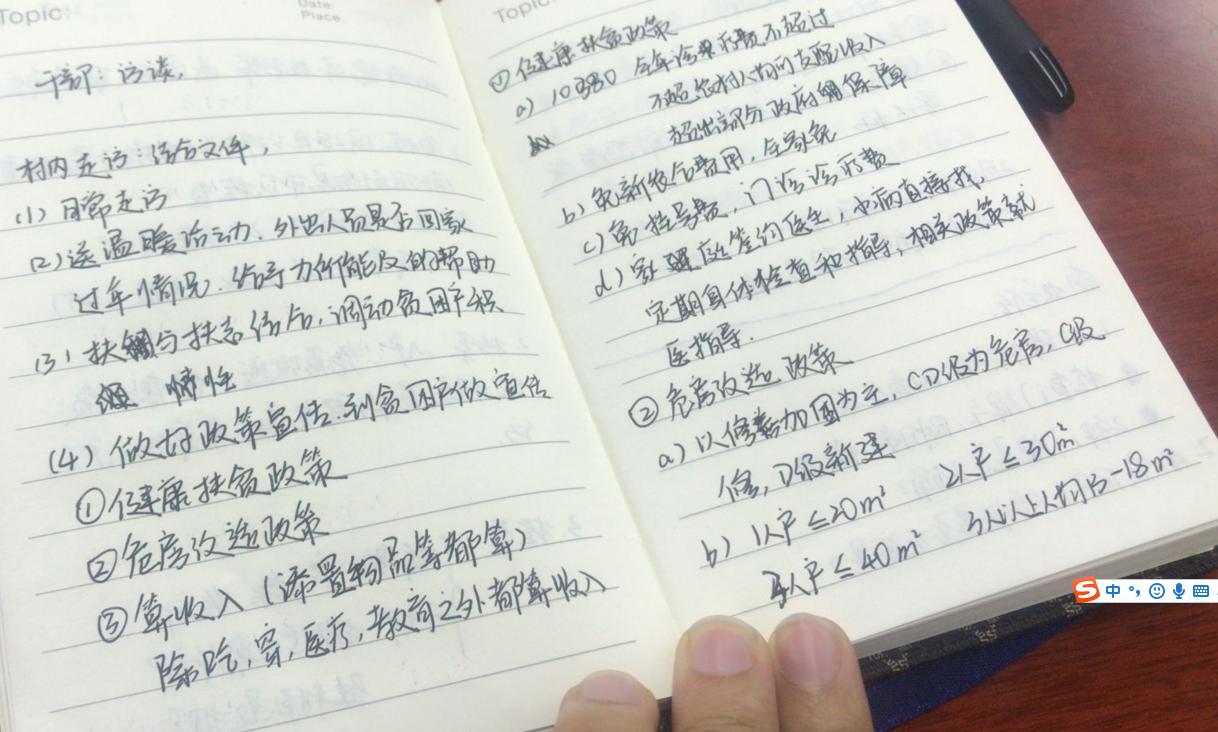 Topic.
Date:
Place:
干部：访谈，
村内走访：结合文件，
(1) 日常走访
(2) 送温暖活动．外出人员是否回家
过年情况．给予力所能及的帮助
(3) 扶智与扶志结合，调动贫困户积
极 情性
(4) 做好政策宣传．到贫困户做宣传
①健康扶贫政策
②危房改造政策
③算收入（添置物品等都算）
除吃，穿，医疗，教育之外都算收入
Topic.
①健康扶贫政策
a) 10380 全年诊疗费不超过
不超农村人均可支配收入
超出部分政府给保障
b) 免新农合费用，全家免
c) 免挂号费，门诊诊疗费
d) 家庭签约医生，小病直接找，
定期身体检查和指导，相关政策就
医指导．
②危房改造政策
a) 以修缮加固为主，CD级为危房，C级
修，D级新建
b) 1人户≤20m² 2人户≤30m²
3人户≤40m² 3人以上人均13-18m²
中